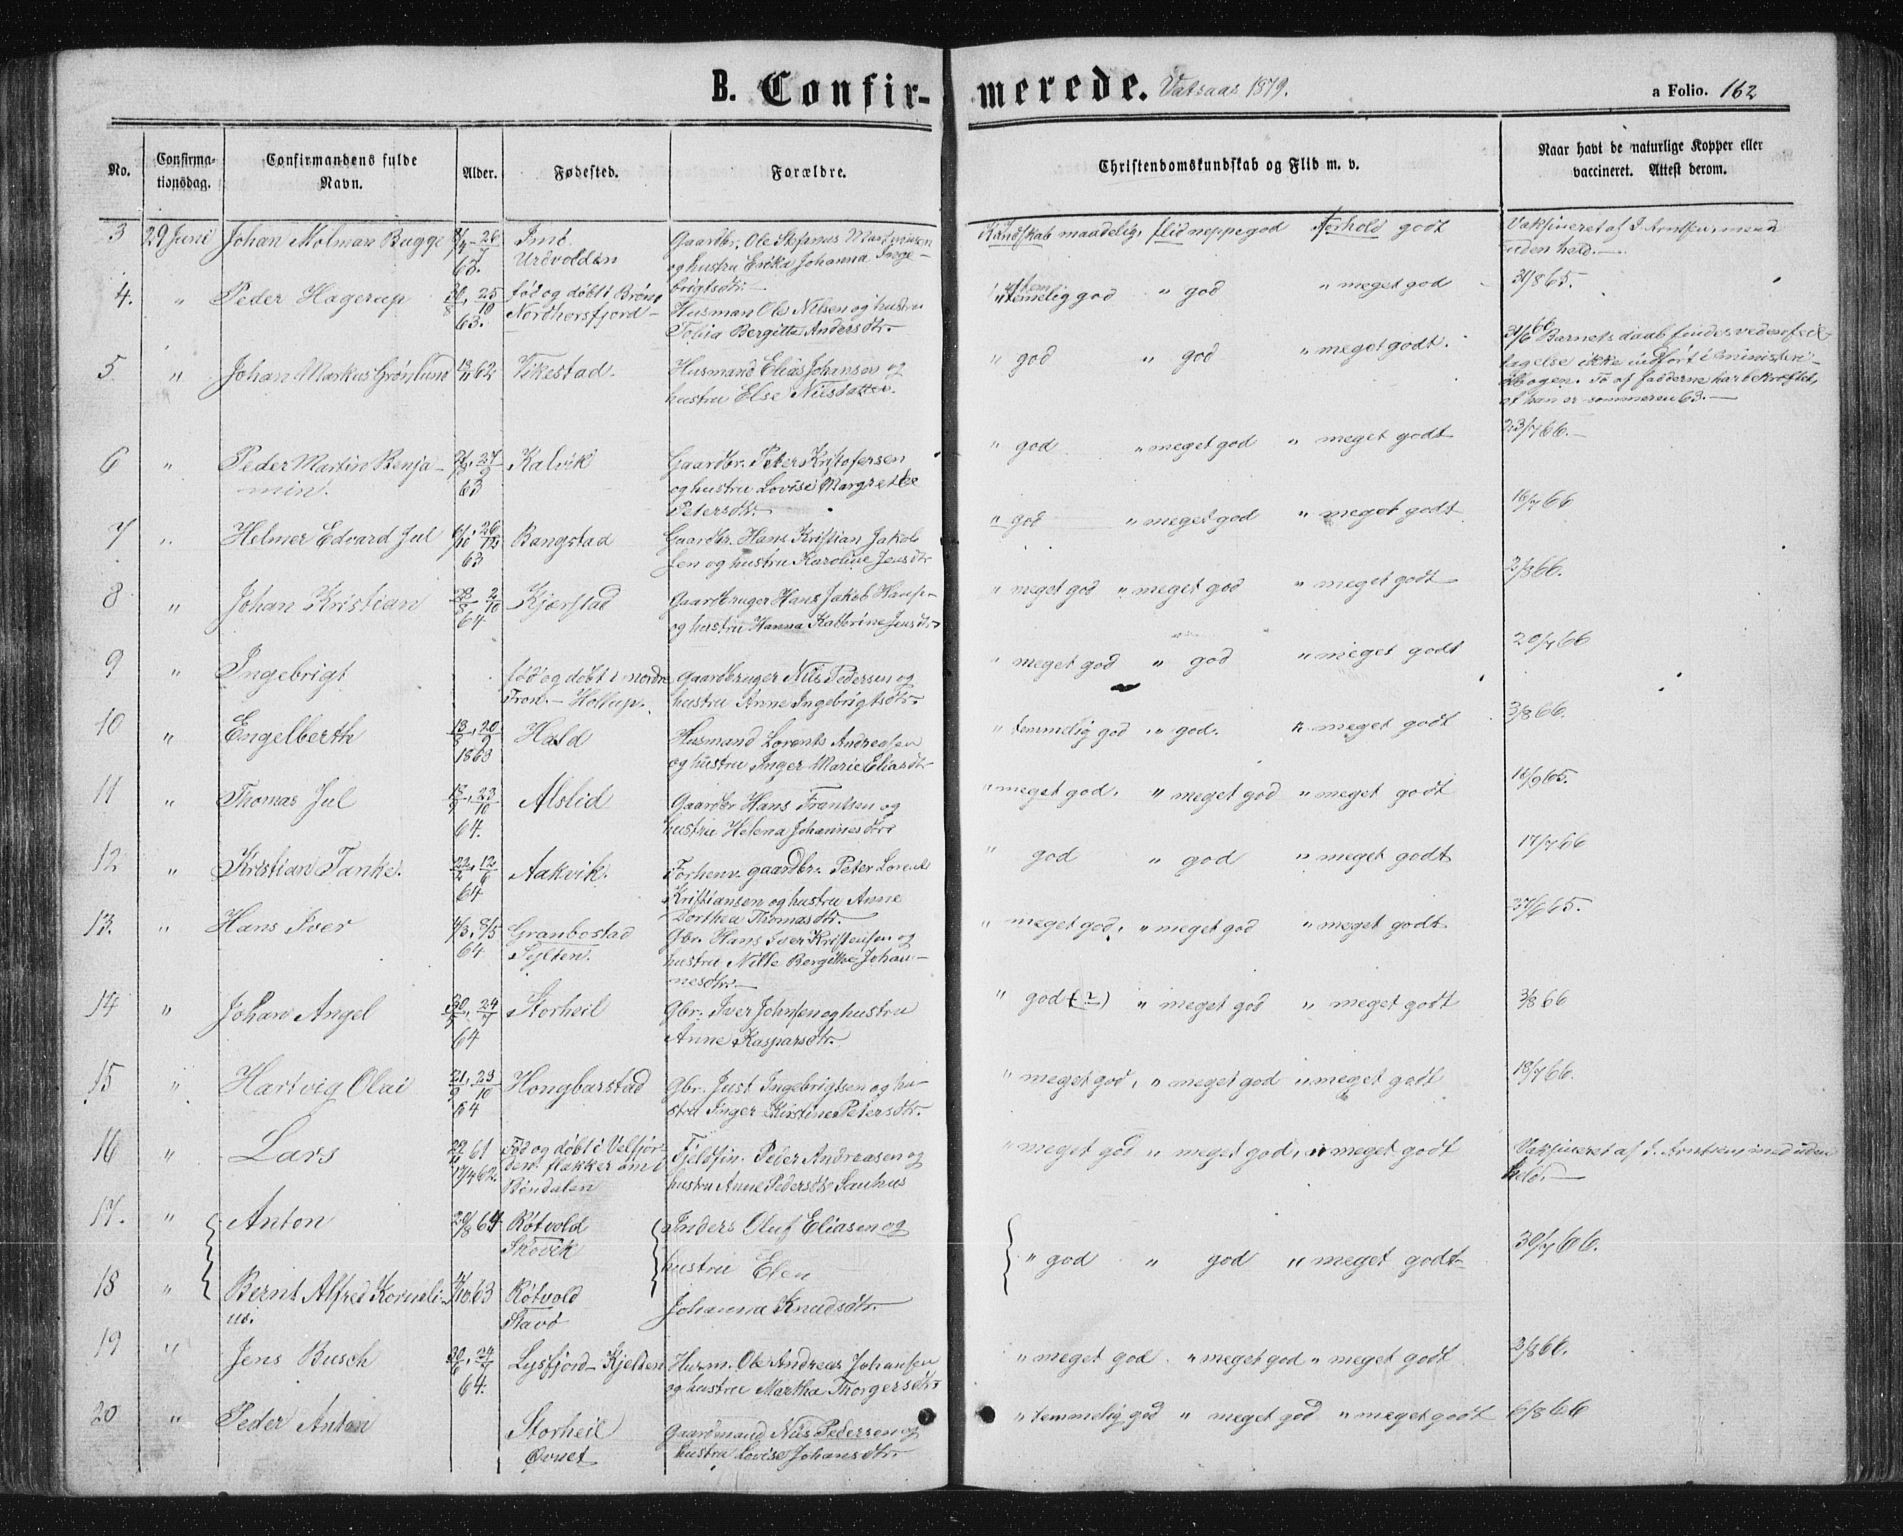 B. Confirmerede. Vatsaas 1879. a Folio. 162
No. Confirma- Confirmandens fulde Alder. Fødested. Forældre. Christendomskundskab og Flid m. v. Naar havt de naturlige Kopper eller
tionsdag. Navn. vaccineret. Attest derom.
3 29 Juni Johan Notman Bugge Gaardbr. Ole Stefanus Martinusen Kundskab maadelig, flid neppe god forhold godt Vaksineret af
63. Urdvolden og hustru Erika Johanna Inge- uden held.
brigtsdtr.
4. " Peder Hagerup 30/8, 25/10 63. fød og døbt i Brønø Husman Ole Nilsen og hustru " temmelig god " god " meget god 31/8 65.
Nordhorsfjord Tobia Bergitta Andersdtr.
5 " Johan Markus Grønlund 62 Vikestad. Husmand Elias Johansen og " god " god " meget godt. 31/6 66 Barnets daab findes ved
hustru Else Nilsdatter. tagelse ikke indført i ministeri-
albogen. To af fadderne har bekræftet,
at han er sommeren 63.
6 " Peder Martin Benja- 27/9 Kalvik Gaardbr. Peter Kristofersen " god " meget god " meget godt 23/7 66.
min. 63 og hustru Lovise Margrethe
Petersdtr.
7 " Helmer Edvard Jul 26/12 63 Bangstad Gaardbr. Hans Kristian Jakob- " god " meget god " meget godt 16/7 66
sen og hustru Karoline Jensdtr
8 " Johan Kristian 28/8, 2/10 64 Kjærstad Gaardbruger Hans Jakob Hans- " meget god " meget god " meget godt 2/8 66.
og hustru Hanna Kathrine Jensdtr
9 " Ingebrigt fød og døbt i nordre Gaardbruger Nils Pedersen og " meget god " god " meget godt 20/7 66
Fron. - hustru Anne Ingebrigtsdtr.
10 " Engelberth 20/9 1863 Hald Husmand Lorents Andreasen " temmelig god " god. " meget godt 3/8 66.
og hustru Inger Marie Eliasdtr
11 " Thomas Jul 23/10 64. Alslid Gaardbr Hans Frantsen og " meget god. " meget god " meget godt 16/9 65.
hustru Helena Johannesdtr
12 " Kristian Tanke. 22/2, 12/6 64 Aakvik. Forhenv. gaardbr. Peter Lorents " god " god " meget godt 17/7 66
Kristiansen og hustru Anne
Dorthea Thomasdtr.
13. " Hans Iver 4/3, 8/5 64 Granbostad Gbr. Hans Iver Kristensen og " meget god, " meget god " meget godt 65.
Sylten. hustru Nille Bergitte Johan-
nesdtr.
14 " Johan Angel 24/7 64 Storheil Gbr. Iver Johnsen og hustru " god (?) " meget god " meget godt 3/8 66
Anne Kaspersdtr.
15 " Hartvig Olai 21/9, 23/10 64 Hongbarstad Gbr. Just Ingebrigtsen og hu- " meget god, " meget god " meget godt 18/7 66.
stru Inger Kirstine Petersdtr.
16 " Lars 61 Fød og døbt i Velfjor- Fjeldfin. Peder Andreasen og " meget god " meget god, " meget godt Vaksineret af uden
17/4 62. den. flakker om i hustru Anne Pedersdtr held.
Bindalen
17. " Anton 20/8 64 Røtvold Anders Oluf Eliasen og
Skovik hustru Elen " god " god " meget godt 30/7 66.
18 " Bernt Alfred Korneli- 63 Røtvold Johanna Knudsdtr.
us.
19 " Jens Busch 24/7 64. Lysfjord-Kjelden Husm. Ole Andreas Johansen " meget god. " meget god " meget godt 2/8 66.
og hustru Martha Thorgersdtr.
20 " Peder Anton Storheil Gaardmand Nils Pedersen og " temmelig god " meget god " meget godt 6/8 66
Øvuet hustru Lovise Johansdtr.